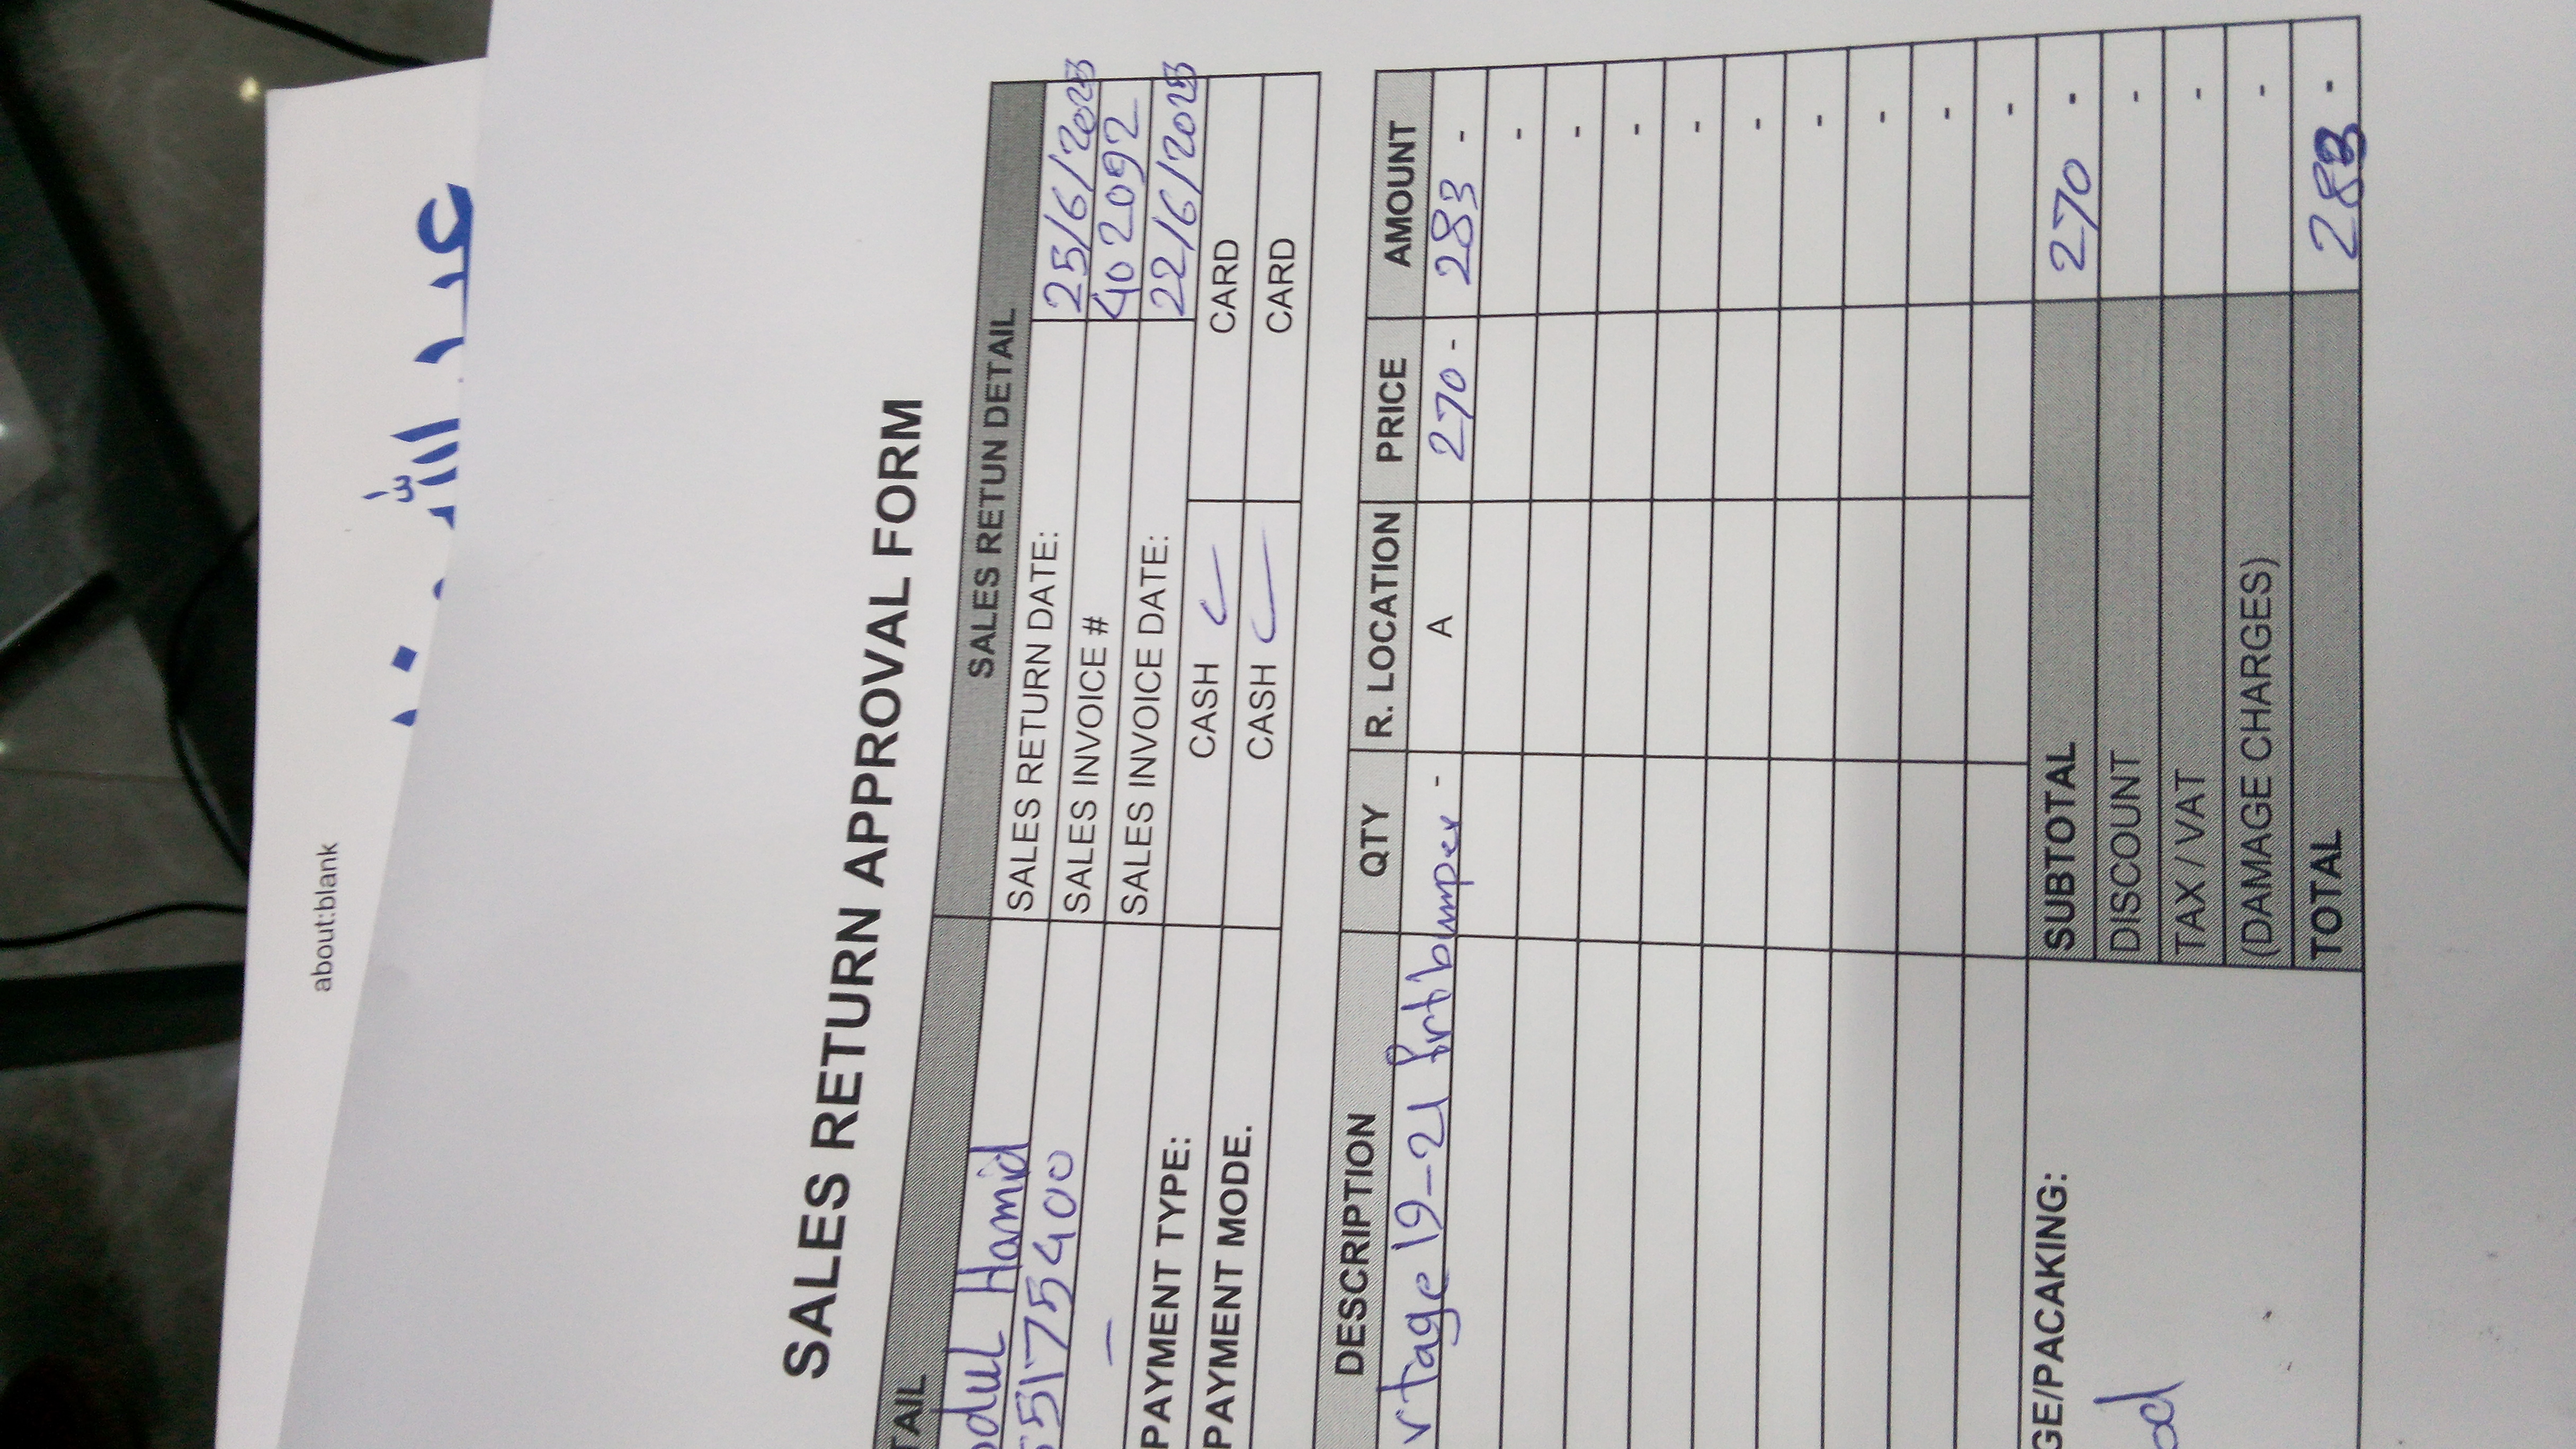 about:blank
عبد الله
SALES RETURN APPROVAL FORM
TAIL SALES RETUN DETAIL
dul Hamid SALES RETURN DATE: 25/6/2023
55175400 SALES INVOICE # 402092
- SALES INVOICE DATE: 22/6/2023
PAYMENT TYPE: CASH ✓ CARD
PAYMENT MODE. CASH ✓ CARD
DESCRIPTION QTY R. LOCATION PRICE AMOUNT
rtage 19-21 frt bumper - A 270 - 283 -
-
-
-
-
-
-
-
-
-
GE/PACAKING: SUBTOTAL 270 -
od DISCOUNT -
TAX / VAT -
(DAMAGE CHARGES) -
TOTAL 283 -